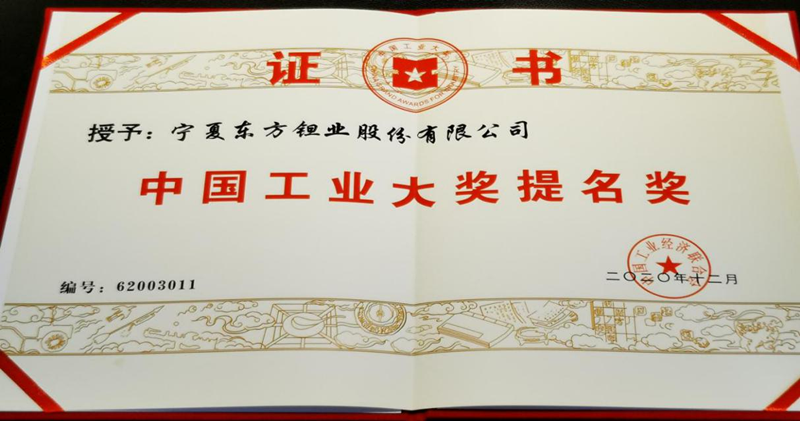 证书
中国工业大奖
授予：宁夏东方钽业股份有限公司
中国工业大奖提名奖
中国工业经济联合会
二〇二〇年十二月
编号：62003011